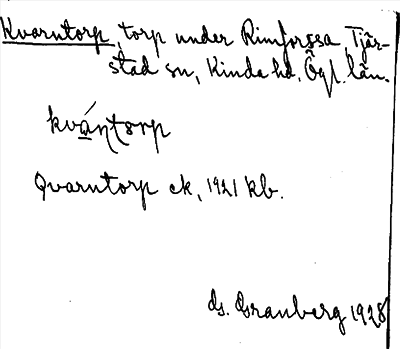 Kvarntorp, torp under Rimforssa, Tjär-
stad sn, Kinda hd, Ögl. län.
kvántorp
Qvarntorp ek, 1921 kb.
G. Granberg 1928